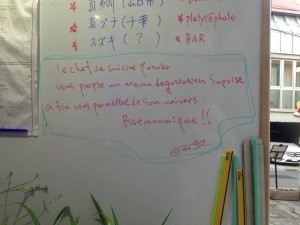 * 真鯛 (山口県) *
* 真ブナ (千葉) * platycéphale
* スズキ ( ? ) * BAR
Le chef de cuisine Yuriko
Vous propose un menu dégustation Suprise
afin vous permettre de son univers
Bistronomique !!